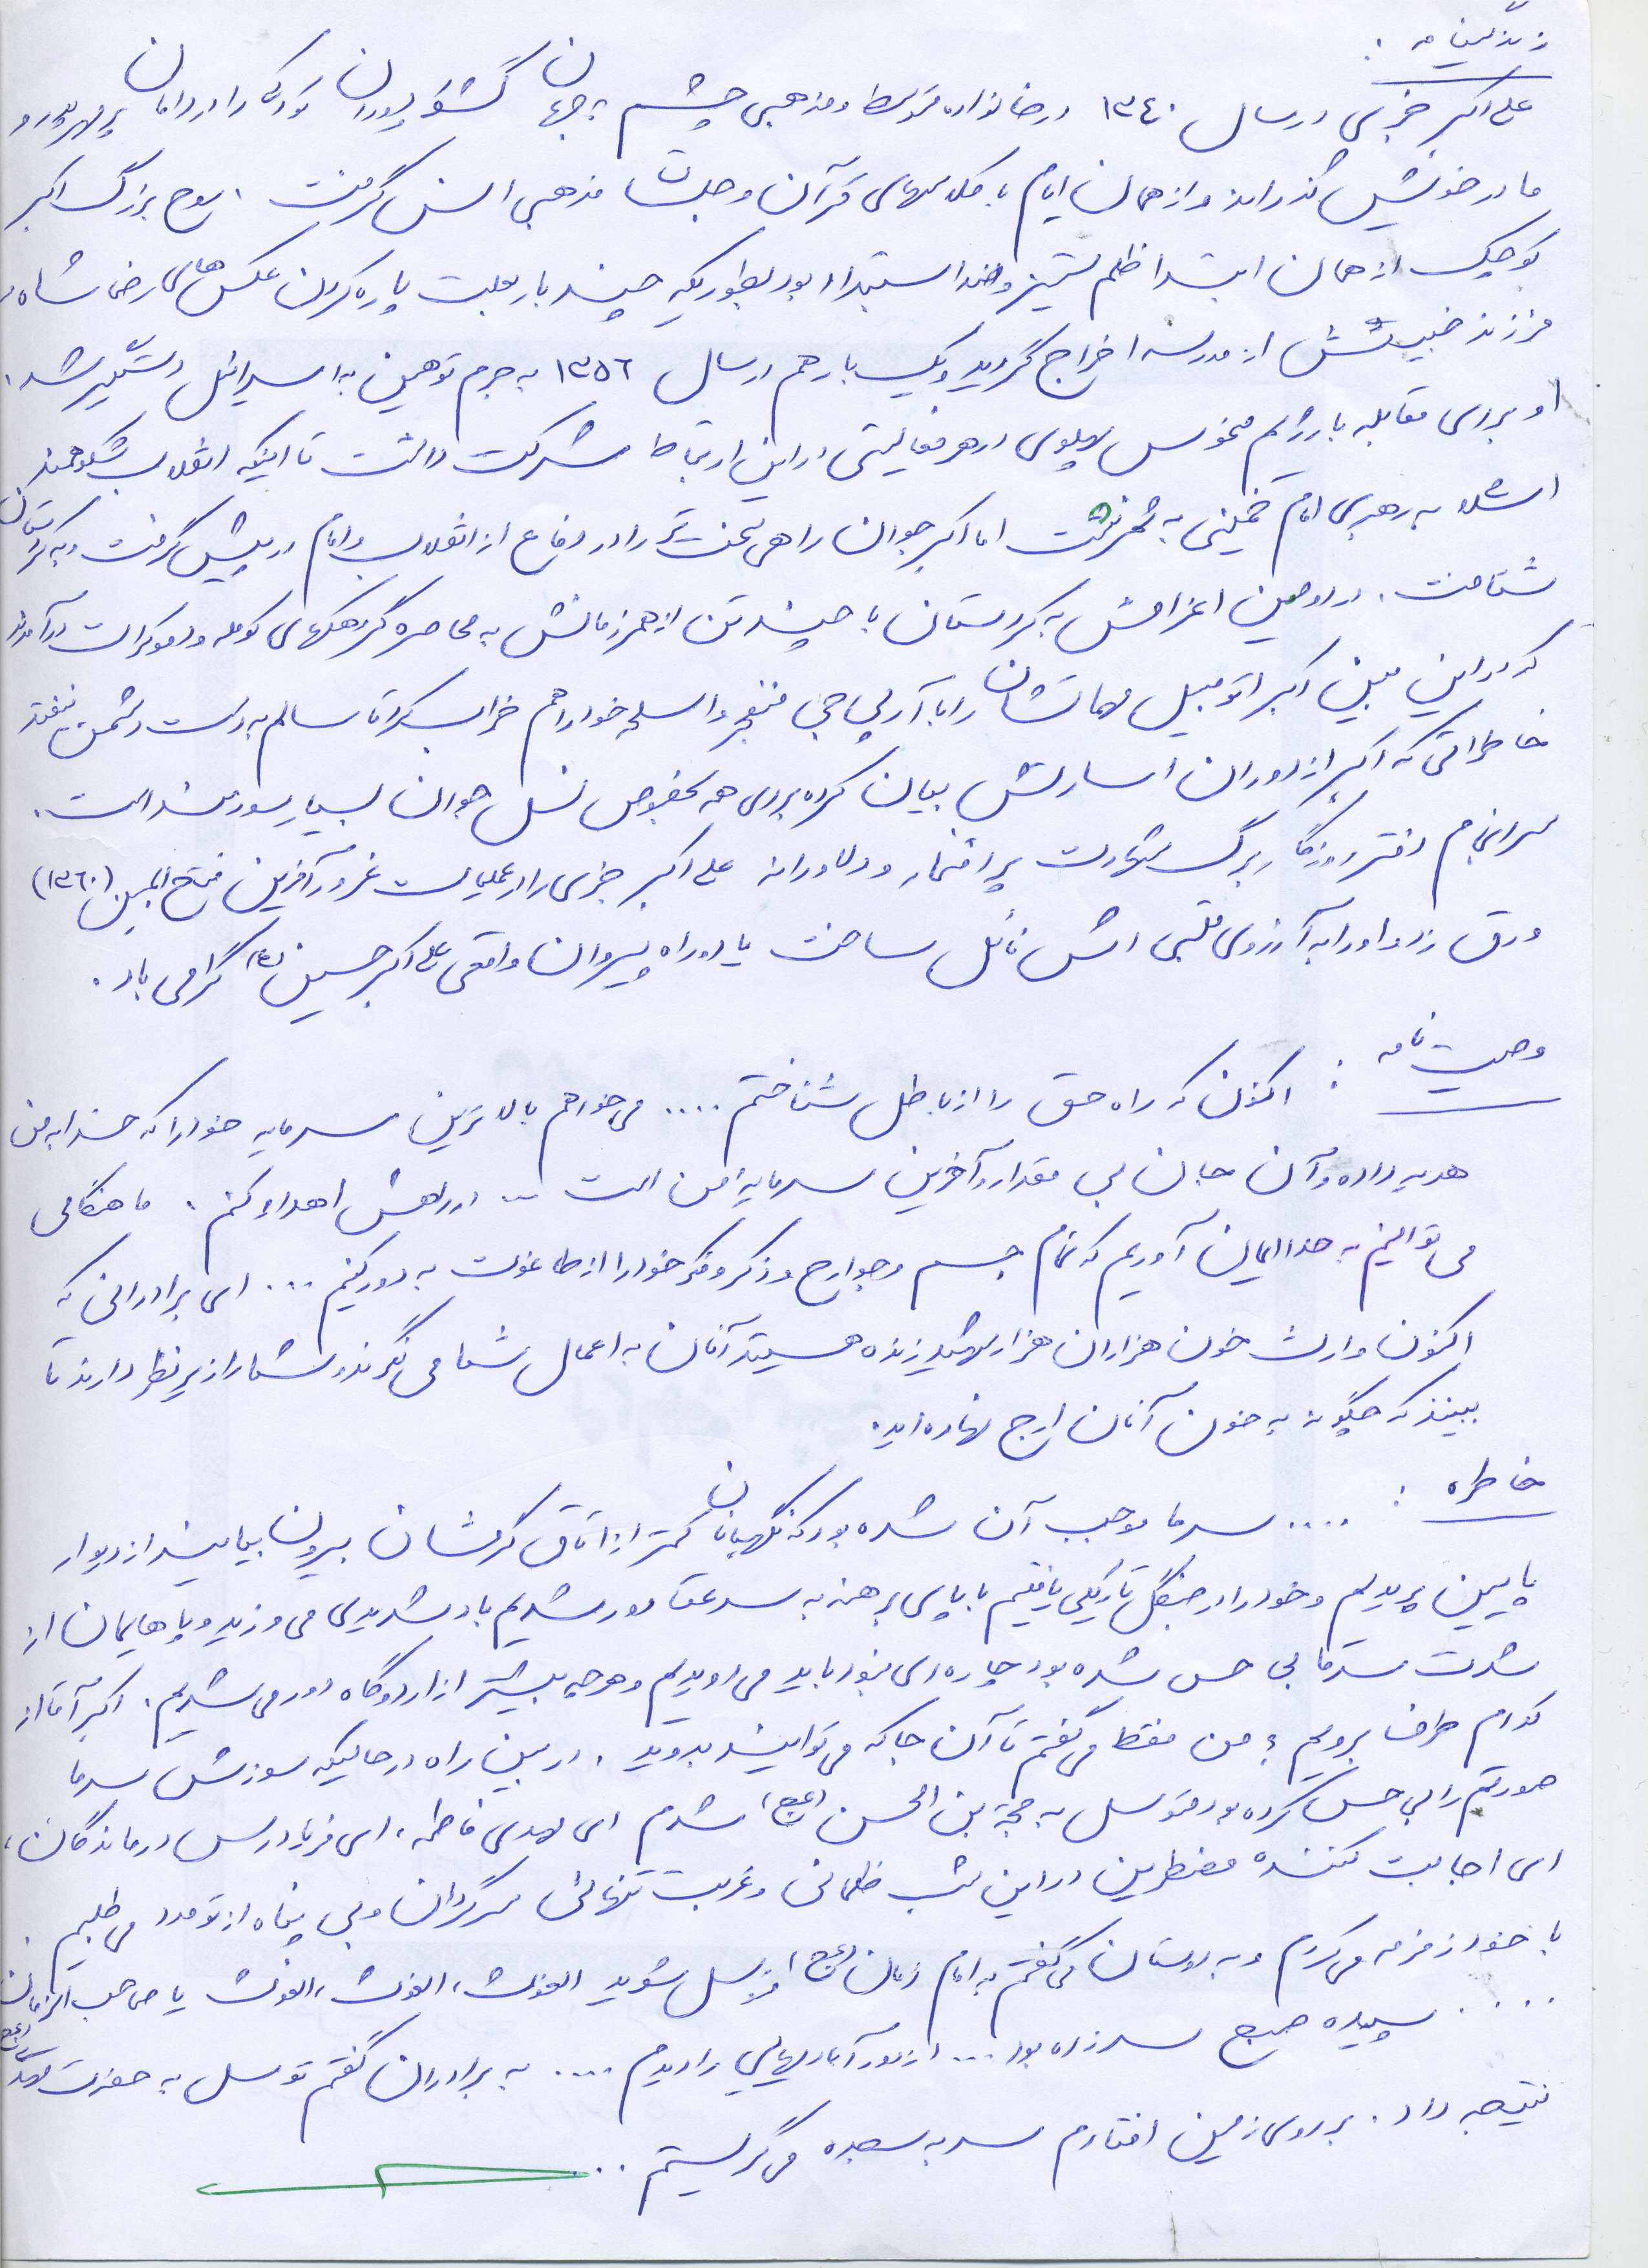 زندگینامه :
علی اکبر خبری در سال ۱۳٤۰ در خانواده متوسط و مذهبی چشم به جهان گشود دوران کودکی را در دامان پر مهر پدر و
مادر خویش گذراند و از همان ایام با کلاسهای قرآن و جلسات مذهبی انس گرفت . روح بزرگ اکبر
کوچک از همان ابتدا ظلم ستیز و ضد استبداد بود بطوریکه چند بار بعلت پاره کردن عکس های رضا شاه و
فرزند خبیثش از مدرسه اخراج گردید و یک بار هم در سال ۱۳۵٦ به جرم توهین به اسرائیل دستگیر شد .
او برای مقابله با رژیم منحوس پهلوی در هر فعالیتی در این ارتباط شرکت داشت تا اینکه انقلاب شکوهمند
اسلامی به رهبری امام خمینی به ثمر نشست اما اکبر جوان راهی سخت تر را در دفاع از انقلاب و امام در پیش گرفت و به کردستان
شتافت . در دومین اعزامش به کردستان با چند تن از همرزمانش به محاصره گروهکهای کومله و دموکرات درآمدند
که در این بین اکبر اتومبیل مهماتشان را با آر پی جی منفجر و اسلحه خود را هم خراب کرد تا سالم به دست دشمن نیفتد
خاطراتی که اکبر از دوران اسارتش بیان کرده برای همه بخصوص نسل جوان بسیار سودمند است .
سرانجام دفتر روزگار برگ شهادت پر افتخار و دلاورانه علی اکبر خبری را در عملیات غرور آفرین فتح المبین (۱۳٦۰)
ورق زد و او را به آرزوی قلبی اش نائل ساخت یاد و راه پیروان واقعی علی اکبر حسین (ع) گرامی باد .
وصیت نامه :
اکنون که راه حق را از باطل شناختم .... می خواهم بالاترین سرمایه خود را که خدا به من
هدیه داده و آن جان بی مقدار و آخرین سرمایه من است ... در راهش اهداء کنم . ما هنگامی
می توانیم به خدا ایمان آوریم که تمام جسم و جوارح و ذکر و فکر خود را از طاغوت به دور کنیم ... ای برادرانی که
اکنون وارث خون هزاران هزار شهید زنده هستید آنان به اعمال شما می نگرند و شما را زیر نظر دارند تا
ببینند که چگونه به خون آنان ارج نهاده اید .
خاطره :
.... سرما موجب آن شده بود که نگهبانان کمتر از اتاق گرمشان بیرون بیایند از دیوار
پایین پریدیم و خود را در جنگل تاریکی یافتیم با پای برهنه به سرعت دور شدیم باد شدیدی می وزید و پاهایمان از
شدت سرما بی حس شده بود چاره ای نبود باید می دویدیم و هر چه بیشتر از اردوگاه دور می شدیم . اکبر آقا از
کدام طرف برویم ؟ من فقط می گفتم تا آن جا که می توانید بدوید . در بین راه در حالیکه سوزش سرما
صورتم را بی حس کرده بود متوسل به حجة بن الحسن (عج) شدم ای مهدی فاطمه ، ای فریادرس درماندگان ،
ای اجابت کننده مضطرین در این شب ظلمانی و غربت تنهائی سرگردان و بی پناه از تو مدد می طلبیم .
با خود زمزمه می کردم و به دوستان می گفتم به امام زمان (عج) متوسل شوید الغوث ، الغوث یا صاحب الزمان
.... سپیده صبح سر زده بود ... از دور آبادیهایی را دیدم .... به برادران گفتم توسل به حضرت مهدی (عج)
نتیجه داد . بر روی زمین افتادم سر به سجده می گریستم ...